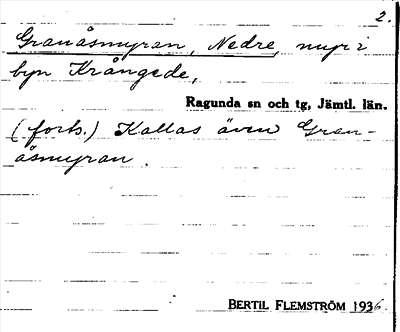 2.
Granåsmyran, Nedre, myr i
byn Krångede,
Ragunda sn och tg, Jämtl. län.
(forts.) Kallas även Gran-
åsmyran.
BERTIL FLEMSTRÖM 1936.